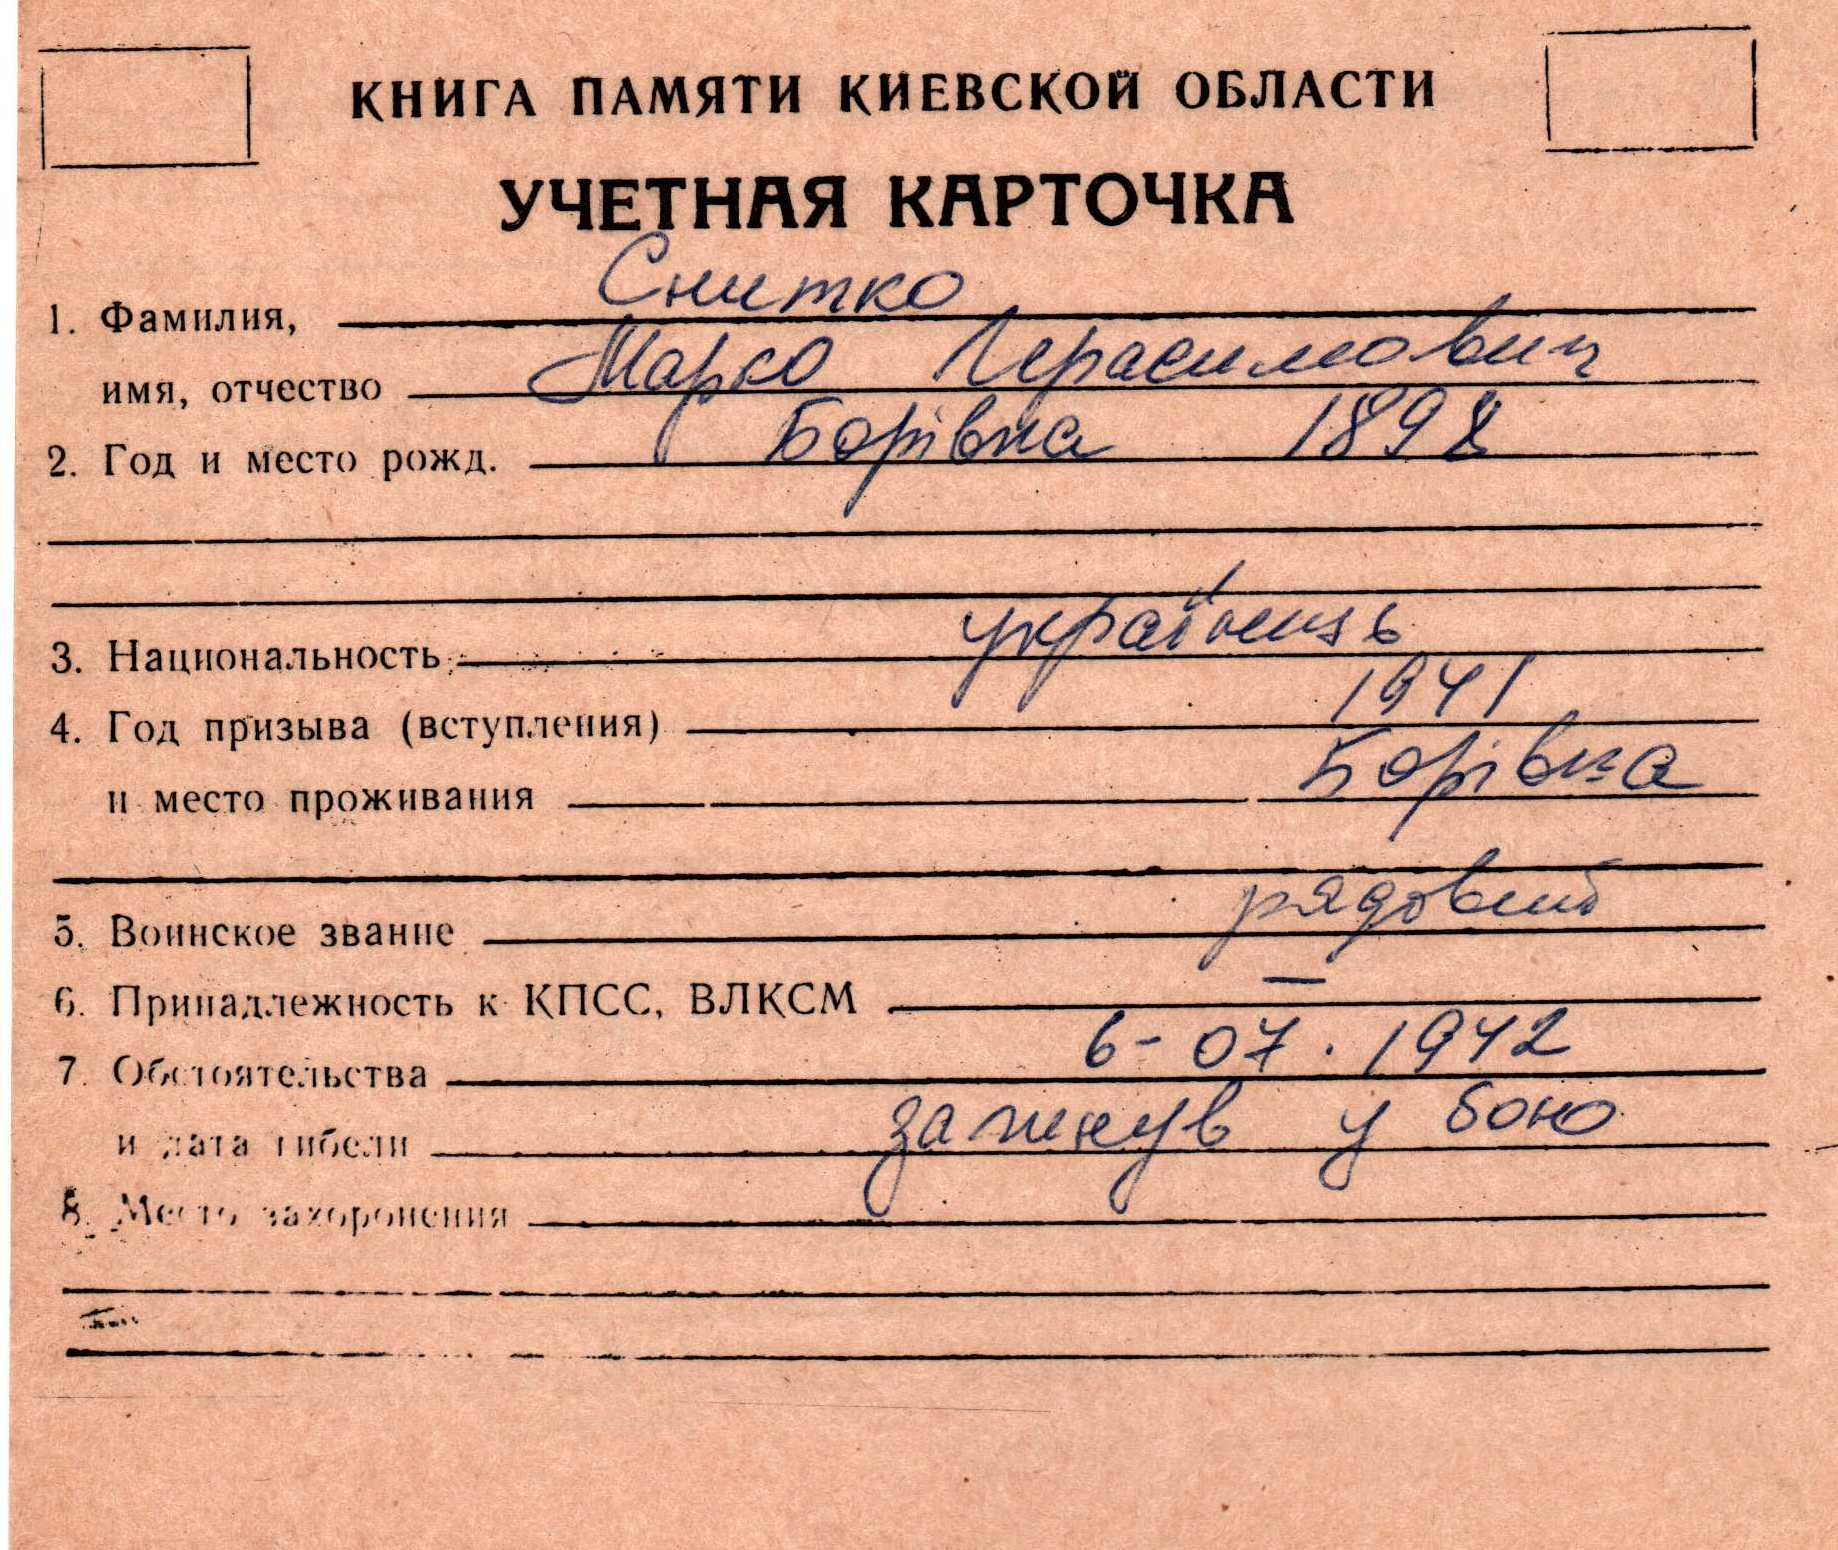 КНИГА ПАМЯТИ КИЕВСКОЙ ОБЛАСТИ
УЧЕТНАЯ КАРТОЧКА
1. Фамилия, Снитко
имя, отчество Марко Герасимович
2. Год и место рожд. Борівка 1898
3. Национальность українець
4. Год призыва (вступления) 1941
и место проживания Борівка
5. Воинское звание рядовий
6. Принадлежность к КПСС, ВЛКСМ —
7. Обстоятельства 6-07.1942
и дата гибели загинув у бою
8. Место захоронения